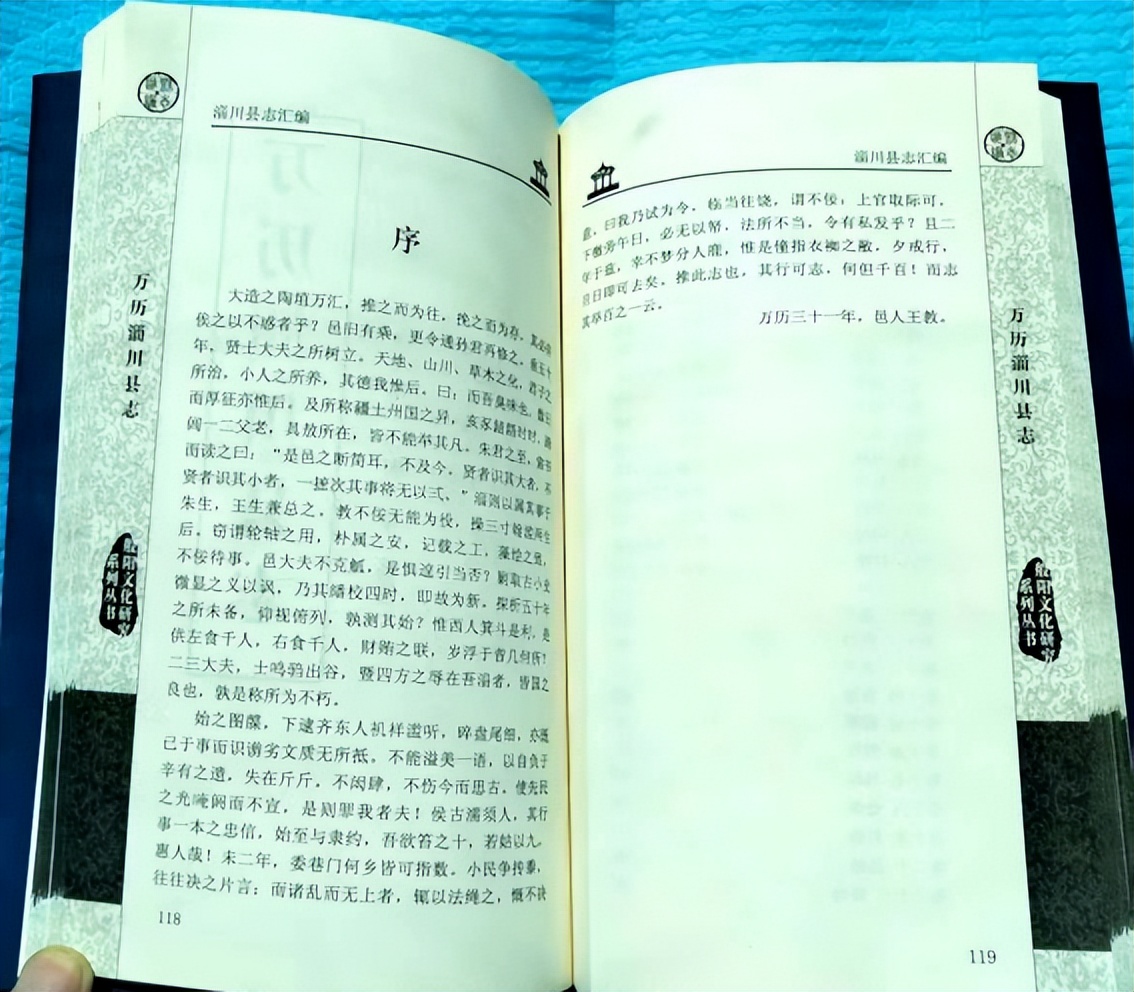 淄川县志汇编
序
大造之陶埴万汇，推之而为往，挽之而为存，其
侯之以不惑者乎？邑旧有乘，更令逮孙君再修之。
年，贤士大夫之所树立。天地、山川、草木之化，君子之
所治，小人之所养，其德我惟后。曰：而吾臭味也，
而厚征亦惟后。及所称疆土州国之异，亥豕
间一二父老，具放所在，皆不能举其凡。朱君之至，
而读之曰：“是邑之断简耳，不及今。贤者识其大者，不
贤者识其小者，一撼次其事将无以弍，”淄则以属其事于
朱生，王生兼总之。教不佞无能为役，操三寸
后。窃谓轮轴之用，朴属之安，记载之工，藻绘之
不佞待事。邑大夫不克觚，是惧遑引当否？剟取古小史
微显之义以讽，乃其皤校四时，即故为新。探析五十年
之所未备，仰视俯列，孰测其始？惟西人箕斗是利，是
供左食千人，右食千人，财贿之联，岁浮于曾几何所！
二三大夫，士鸣鸦出谷，暨四方之辱在吾淄者，皆国之
良也，孰是称所为不朽。
始之图牒，下逮齐东人机样滥听，啐盘尾细，亦
己于事而识谫劣文质无所祗。不能溢美一语，以自负于
辛有之遗，失在斤斤。不闳肆，不伤今而思古。使先民
之光唵阏而不宣，是则罪我者夫！侯古濡须人，其行
事一本之忠信，始至与隶约，吾欲笞之十，若姑以九，
惠人哉！未二年，委巷门何乡皆可指数。小民争抟黍，
往往决之片言；而诸乱而无上者，辄以法绳之，慨不决
118
万历淄川县志
般阳文化研究
系列丛书
淄川县志汇编
意，曰我乃试为令，临当往饶，谓不佞：上官取际可，
下僚旁午日，必无以帑，法所不当，令有私发乎？且二
年于兹，幸不梦分人鹿，惟是憧指衣袽之敝，夕戒行，
旦日即可去矣。推此志也，其行可志，何但千百！而志
其卒百之一云。
万历三十一年，邑人王教。
119
万历淄川县志
般阳文化研究
系列丛书